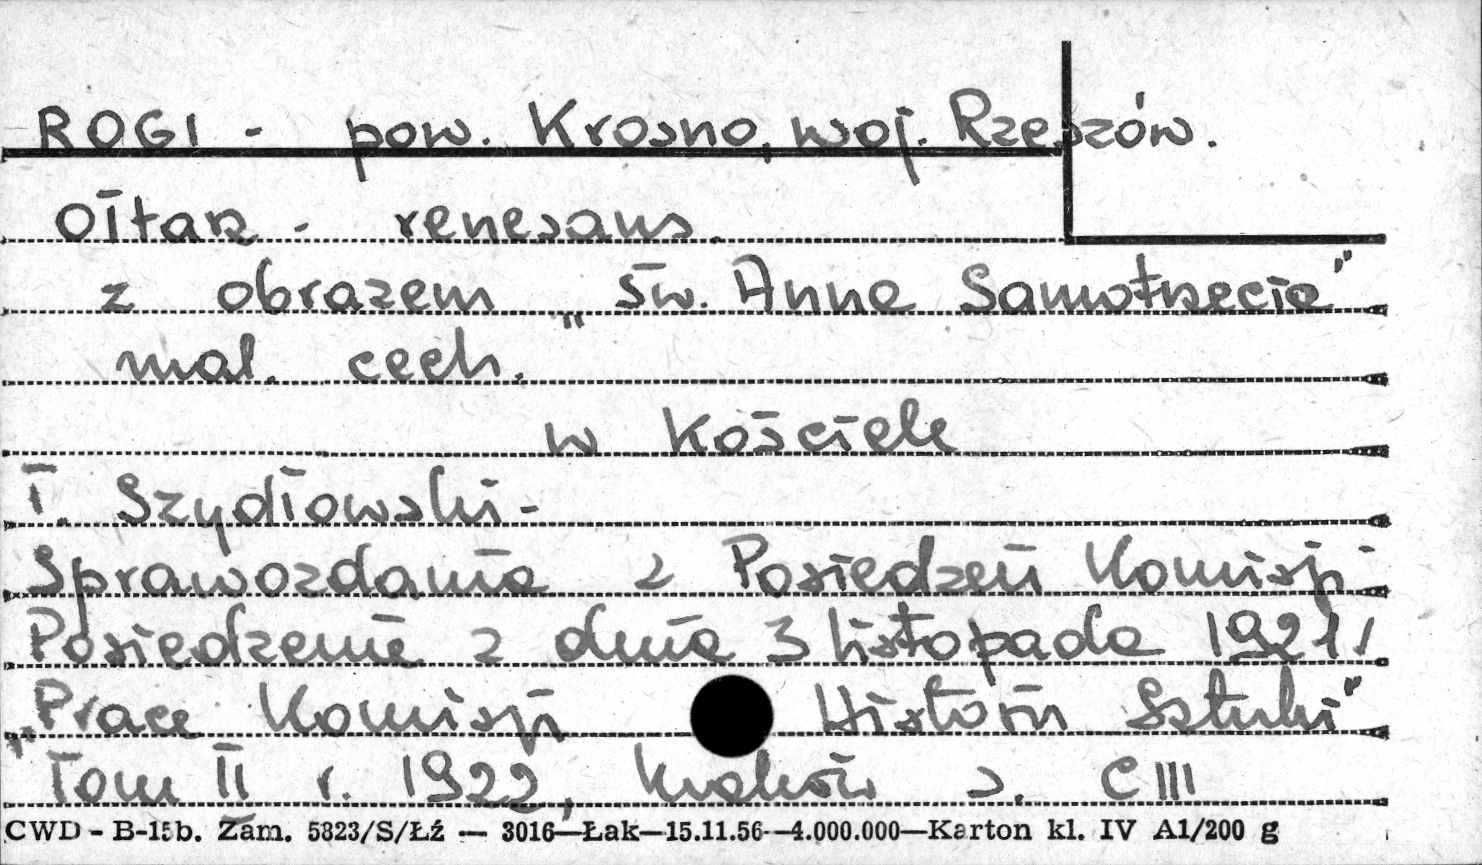 ROGI - pow. Krosno, woj. Rzeszów.
Ołtarz - renesans.
z obrazem „Św. Anna Samotrzecia"
mal. cech.
w Kościele
T. Szydłowski -
Sprawozdania z Posiedzeń Komisji
Posiedzenie z dnia 3 listopada 1921 r.
„Prace Komisji Historii Sztuki"
Tom II r. 1922, Kraków s. CIII
CWD - B-15b. Zam. 5823/S/Łź — 3016—Łak—15.11.56--4.000.000—Karton kl. IV A1/200 g